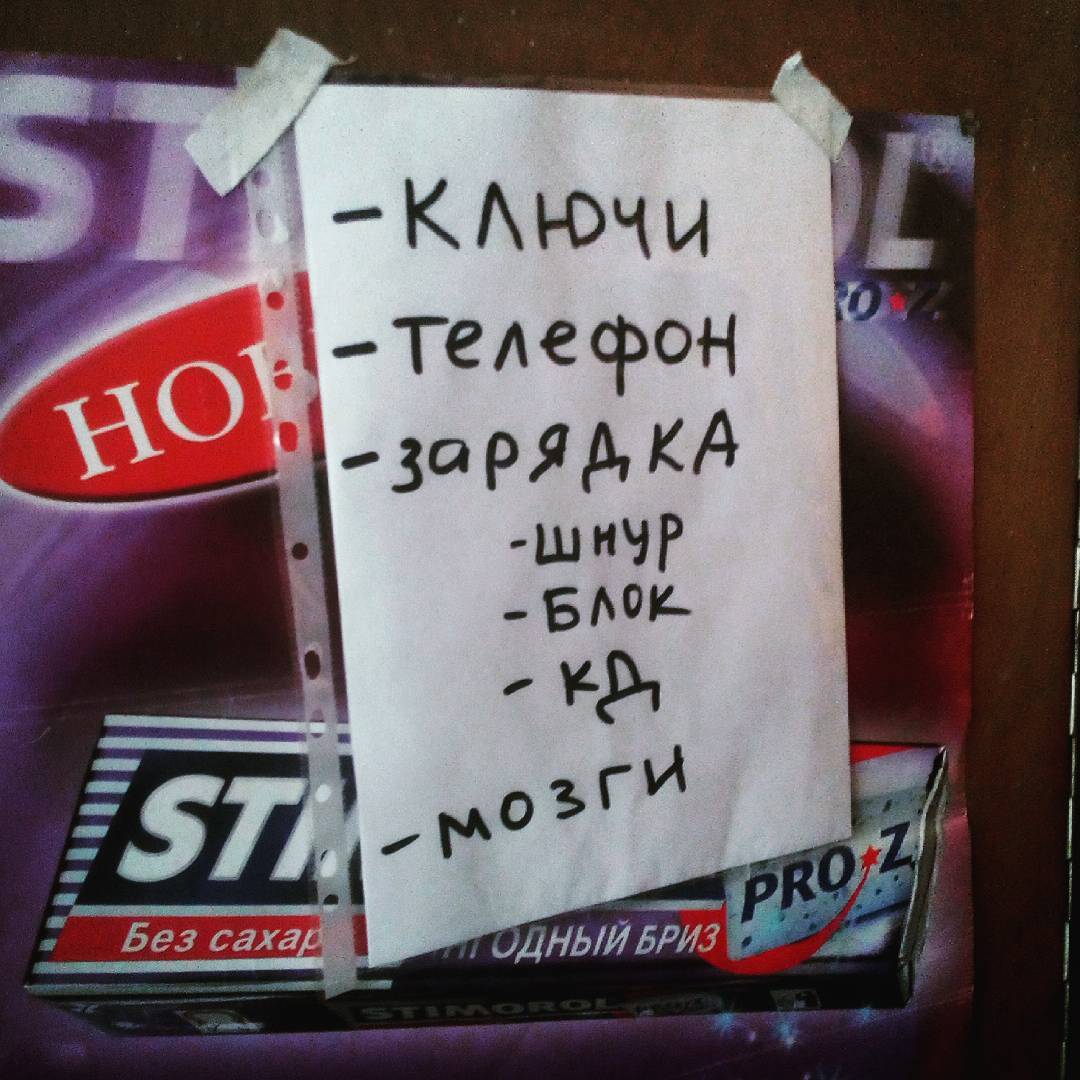 - Ключи
- Телефон
- зарядка
- шнур
- Блок
- кД
- мозги
STIM
PRO Z
Без сахар
ОДНЫЙ БРИЗ
STIMOROL